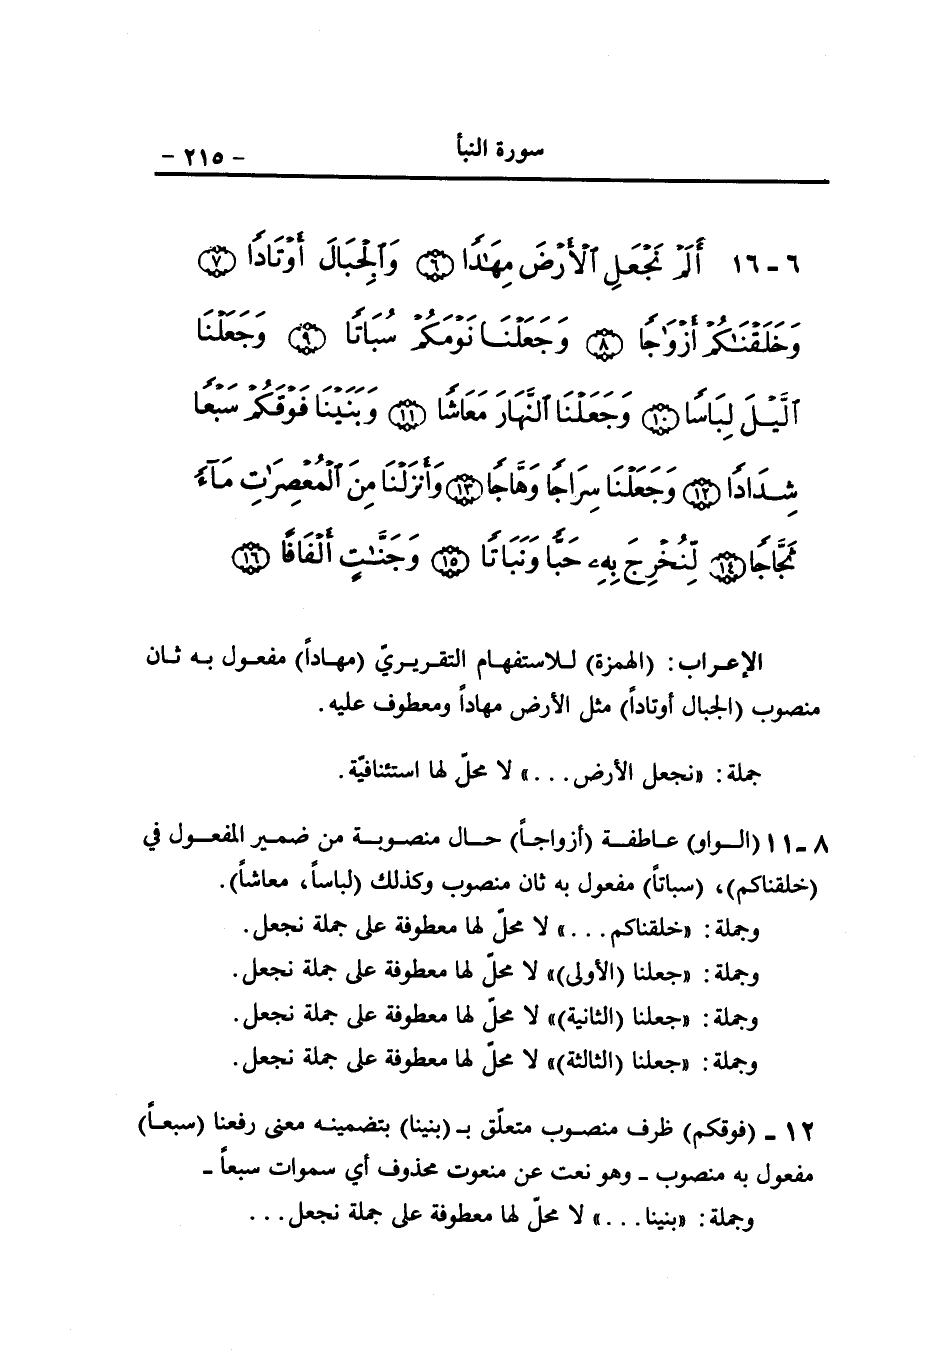 سورة النبأ - ٢١٥ -
٦-١٦ أَلَمْ نَجْعَلِ ٱلْأَرْضَ مِهَٰدًا ۝٦ وَٱلْجِبَالَ أَوْتَادًا ۝٧
وَخَلَقْنَٰكُمْ أَزْوَٰجًا ۝٨ وَجَعَلْنَا نَوْمَكُمْ سُبَاتًا ۝٩ وَجَعَلْنَا
ٱلَّيْلَ لِبَاسًا ۝١٠ وَجَعَلْنَا ٱلنَّهَارَ مَعَاشًا ۝١١ وَبَنَيْنَا فَوْقَكُمْ سَبْعًا
شِدَادًا ۝١٢ وَجَعَلْنَا سِرَاجًا وَهَّاجًا ۝١٣ وَأَنزَلْنَا مِنَ ٱلْمُعْصِرَٰتِ مَآءً
ثَجَّاجًا ۝١٤ لِّنُخْرِجَ بِهِۦ حَبًّا وَنَبَاتًا ۝١٥ وَجَنَّٰتٍ أَلْفَافًا ۝١٦
الإعراب: (الهمزة) للاستفهام التقريريّ (مهاداً) مفعول به ثان
منصوب (الجبال أوتاداً) مثل الأرض مهاداً ومعطوف عليه.
جملة: «نجعل الأرض...» لا محلّ لها استئنافيّة.
٨-١١ (الواو) عاطفة (أزواجاً) حال منصوبة من ضمير المفعول في
(خلقناكم)، (سباتاً) مفعول به ثان منصوب وكذلك (لباساً، معاشاً).
وجملة: «خلقناكم...» لا محلّ لها معطوفة على جملة نجعل.
وجملة: «جعلنا (الأولى)» لا محلّ لها معطوفة على جملة نجعل.
وجملة: «جعلنا (الثانية)» لا محلّ لها معطوفة على جملة نجعل.
وجملة: «جعلنا (الثالثة)» لا محلّ لها معطوفة على جملة نجعل.
١٢ - (فوقكم) ظرف منصوب متعلّق بـ (بنينا) بتضمينه معنى رفعنا (سبعاً)
مفعول به منصوب - وهو نعت عن منعوت محذوف أي سموات سبعاً -
وجملة: «بنينا...» لا محلّ لها معطوفة على جملة نجعل...